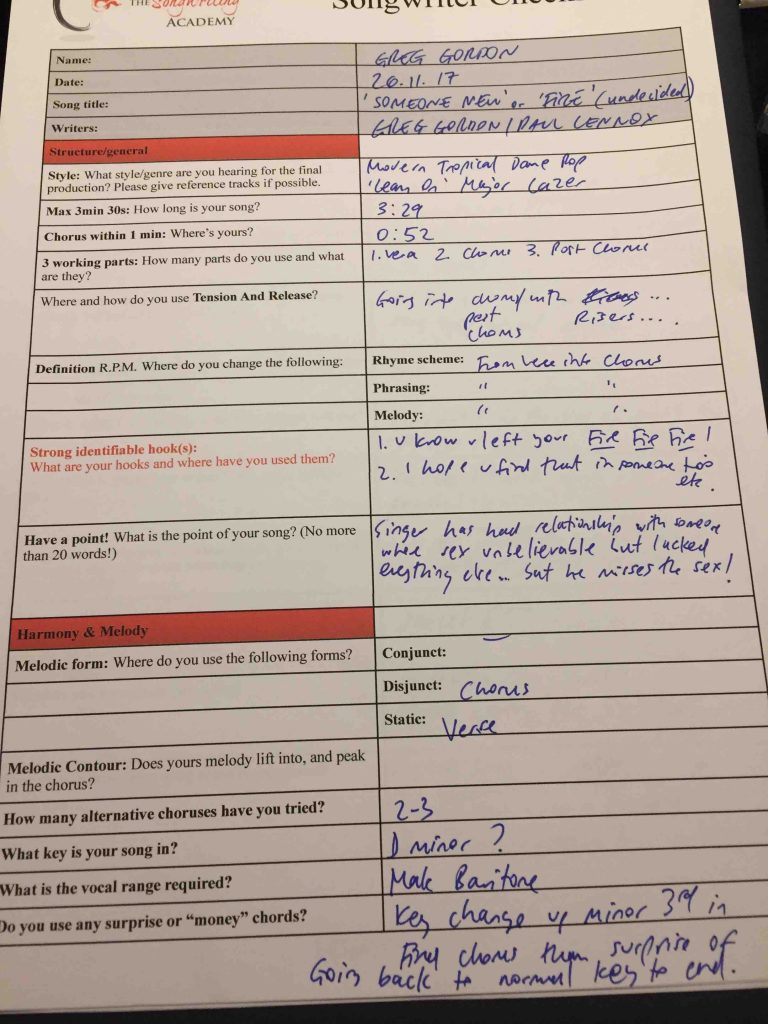 THE SongWriting
ACADEMY
Name: GREG GORDON
Date: 26.11.17
Song title: 'SOMEONE NEW' or 'FIRE' (undecided)
Writers: GREG GORDON / PAUL LENNOX
Structure/general
Style: What style/genre are you hearing for the final
production? Please give reference tracks if possible.
Modern Tropical Dance Pop
'Lean On' Major Lazer
Max 3min 30s: How long is your song? 3:29
Chorus within 1 min: Where's yours? 0:52
3 working parts: How many parts do you use and what
are they?
1. Verse 2. Chorus 3. Post Chorus
Where and how do you use Tension And Release?
Going into chorus/with ...
post Risers ....
chorus
Definition R.P.M. Where do you change the following:
Rhyme scheme: From Verse into Chorus
Phrasing: " "
Melody: " "
Strong identifiable hook(s):
What are your hooks and where have you used them?
1. U know u left your Fire Fire Fire!
2. I hope u find that in someone
etc.
Have a point! What is the point of your song? (No more
than 20 words!)
Singer has had relationship with someone
where sex unbelievable but lacked
everything else... but he misses the sex!
Harmony & Melody
Melodic form: Where do you use the following forms?
Conjunct: –
Disjunct: Chorus
Static: Verse
Melodic Contour: Does yours melody lift into, and peak
in the chorus?
How many alternative choruses have you tried? 2-3
What key is your song in? D minor ?
What is the vocal range required? Male Baritone
Do you use any surprise or “money” chords? Key change up minor 3rd in
Final chorus then surprise of
Going back to normal key to end.